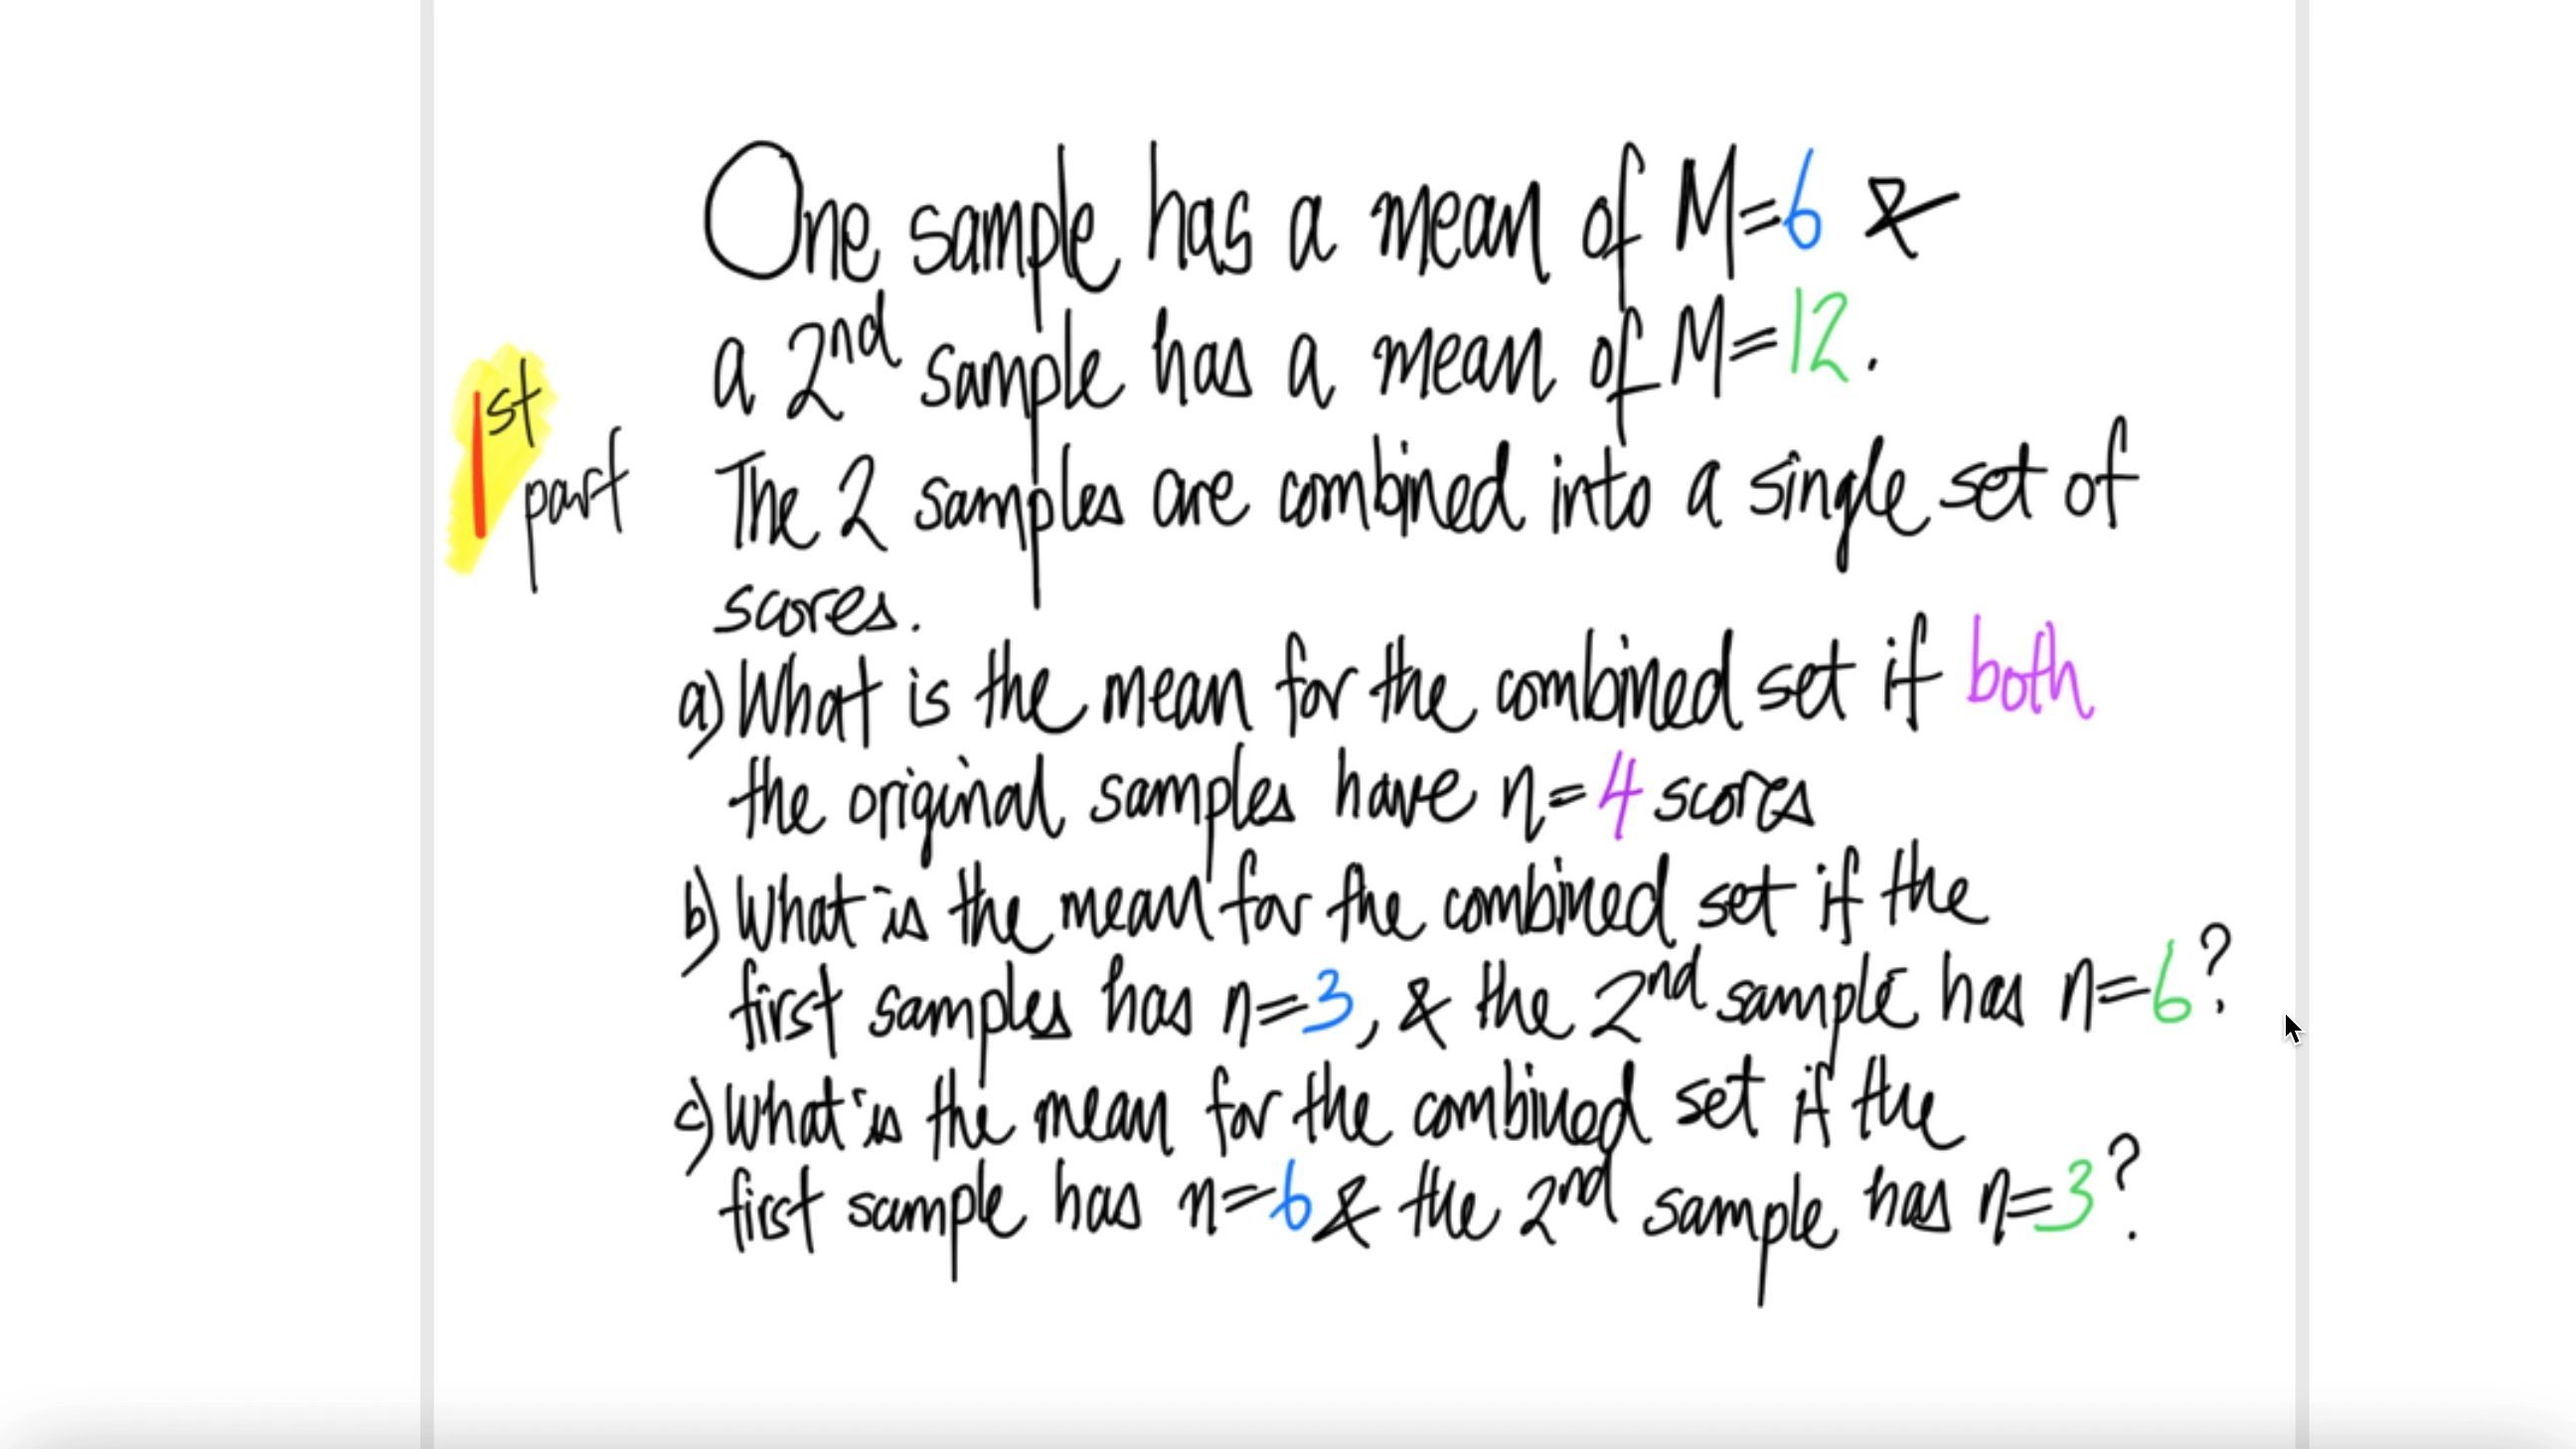 One sample has a mean of M=6 &
a 2nd sample has a mean of M=12.
1st
part
The 2 samples are combined into a single set of
scores.
a) What is the mean for the combined set if both
the original samples have n=4 scores
b) What is the mean for the combined set if the
first samples has n=3, & the 2nd sample has n=6?
c) What is the mean for the combined set if the
first sample has n=6 & the 2nd sample has n=3?